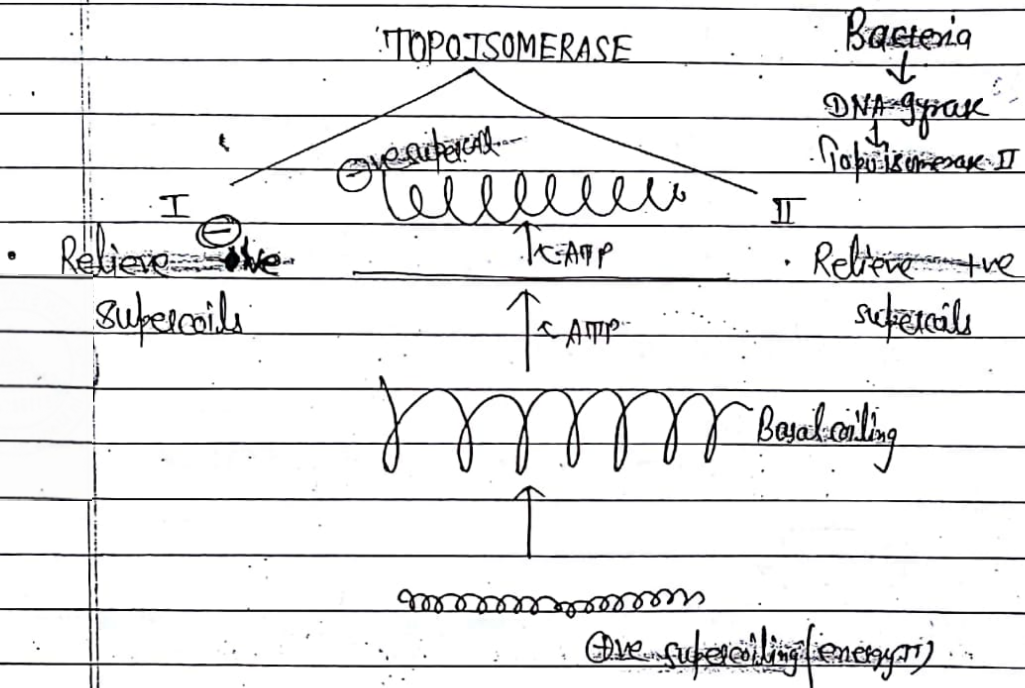 TOPOISOMERASE
Bacteria
↓
DNA gyrase
↓
Topoisomerase II
⊖ve supercoil
I
II
• Relieve ⊖ve
supercoils
↑ ATP
• Relieve +ve
supercoils
↑ ATP
Basal coiling
↑
⊕ve supercoiling (energy↑↑)